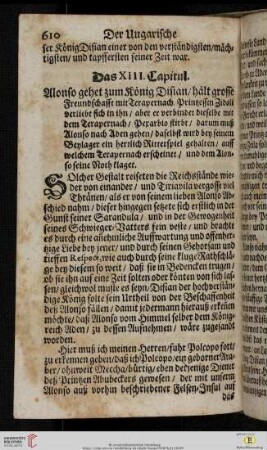 610 Der Ungarische
ser König Disian einer von den verständigsten/mäch-
tigsten/ und tapffersten seiner Zeit war.
Das XIII. Capitul.
Alonso gehet zum König Disian/ hält grosse
Freundschafft mit Terapernach. Prinzessin Zidoli
verliebt sich in ihn/ aber er verbindet dieselbe mit
dem Terapernach/ stirbt/ darum muß
Alonso nach Aden gehen/ daselbst wird bey seinem
Beylager ein herrlich Ritterspiel gehalten/ auff
welchem Terapernach erscheinet/ und dem Alon-
so seine Noth klaget.
SOlcher Gestalt reiseten die Reichsstände wie-
der von einander/ und Tiriavila vergosse viel
Thränen/ als er von seinem lieben Alonso Ab-
schied nahm/ dieser hingegen setzete sich erstlich in der
Gunst seiner Sarandula/ und in der Gewogenheit
seines Schwieger-Vatters fein veste/ und brachte
es durch eine ansehnliche Auffwartung und offenher-
tzige Liebe bey jener/ und durch seinen Gehorsam und
tieffen Respect, wie auch durch seine kluge Rathschlä-
ge bey diesem so weit/ daß sie in Bedencken trugen/
ob sie ihn auf eine Zeit solten oder könten von sich las-
sen/ gleichwol muste es seyn/ Disian der hochverstän-
dige König solte sein Urtheil von der Beschaffenheit
deß Alonso fällen/ damit jedermann hierauß erkennen
möchte/ daß Alonso vom Himmel selber dem König-
reich Aden/ zu dessen Aufnehmen/ wäre zugesandt
worden.
Hier muß ich meinen Herren/ fuhr Polcopo fort/
zu erkennen geben/ daß ich Polcopo/ ein geborner Ara-
ber/ ohnweit Meccha/ bürtig/ eben derjenige Diener
deß Printzen Abubeckers gewesen/ der mit unserm
Alonso auß vorhin beschriebener Felsen-Insul auf
das